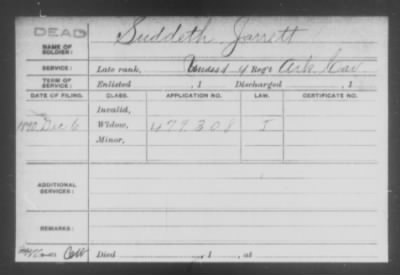 DEAD
NAME OF SOLDIER:
Suddeth Jarrett
SERVICE:
Late rank, Undesd 4 Reg't Ark Cav.
TERM OF SERVICE:
Enlisted , 1 Discharged , 1
DATE OF FILING. CLASS. APPLICATION NO. LAW. CERTIFICATE NO.
Invalid,
1890 Dec 6 Widow, 479308 J
Minor,
ADDITIONAL SERVICES:
REMARKS:
Died , 1 , at